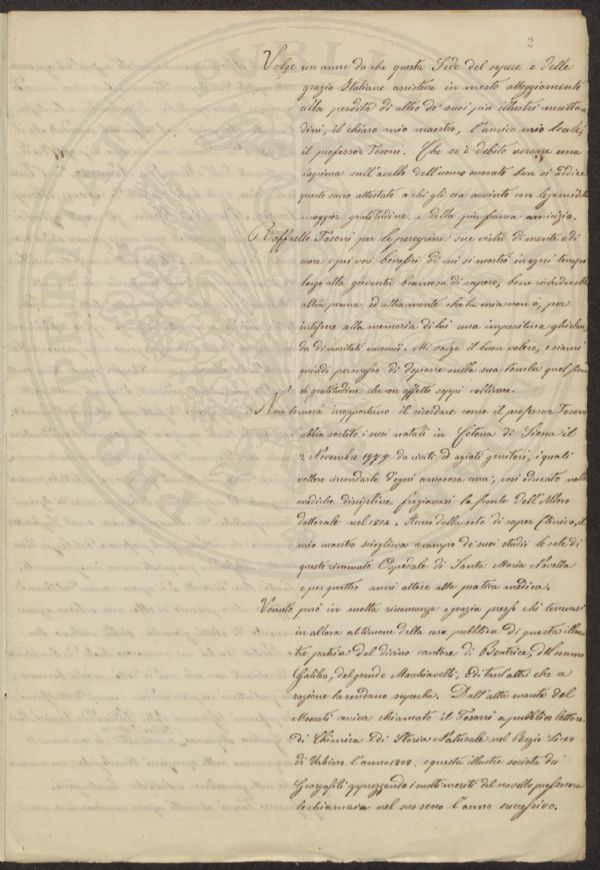 2
Volge un anno da che questa Sede del sapere e delle
grazie Italiane assisteva in mesto atteggiamento
alla perdita di altro de' suoi più illustri concitta-
dini, il chiaro mio maestro, l'amico mio leale,
il professor Tosoni. Che se è debito versare una
lagrima sull'avello dell'uomo onorato ben si addice
questo sacro attestato a chi gli era avvinto con legami di
maggior gratitudine, e della più franca amicizia.
A Raffaello Tosoni per le peregrine sue virtù di mente e di
cuore e pei veri benefizi di cui si mostrò in ogni tempo
largo alla gioventù bramosa di sapere, bene richiederebbe
altra penna ed altra mente che la mia non è, per
intessere alla memoria di lui una imperitura ghirlan-
da di meritati encomii. Mi valga il buon volere, e siami
quindi permesso di deporre sulla sua tomba quel fior
di gratitudine che con affetto seppi coltivare.
Non tornerà inopportuno il ricordare come il professor Tosoni
abbia sortito i suoi natali in Cotona di Siena il
2 Novembre da civili ed agiati genitori, i quali
vollero circondarlo d'ogni amorosa cura, così educato nelle
mediche discipline, fregiavasi la fronte dell'Alloro
dottorale nel 1804. Mosso dalla sete di saper Clinico, il
mio maestro sceglieva a campo de' suoi studii le sale di
questo rinomato Ospedale di Santa Maria Novella
e per quattro anni attese alla pratica medica.
Venuto però in molta rinomanza e grazia presso chi tenevasi
in allora al timone della cosa pubblica di questa illus-
tre patria del divino cantore di Beatrice, del sommo
Galileo, del grande Macchiavelli, e di tant'altri che a
ragione la rendono superba. Dall'alta mente del
Moscati veniva chiamato il Tosoni a pubblico lettore
di Chimica e di Storia Naturale nel Regio Liceo
di Urbino l'anno 1808. e questa illustre società dei
Georgofili apprezzando i molti meriti del novello professore
lo chiamava nel suo seno l'anno successivo.